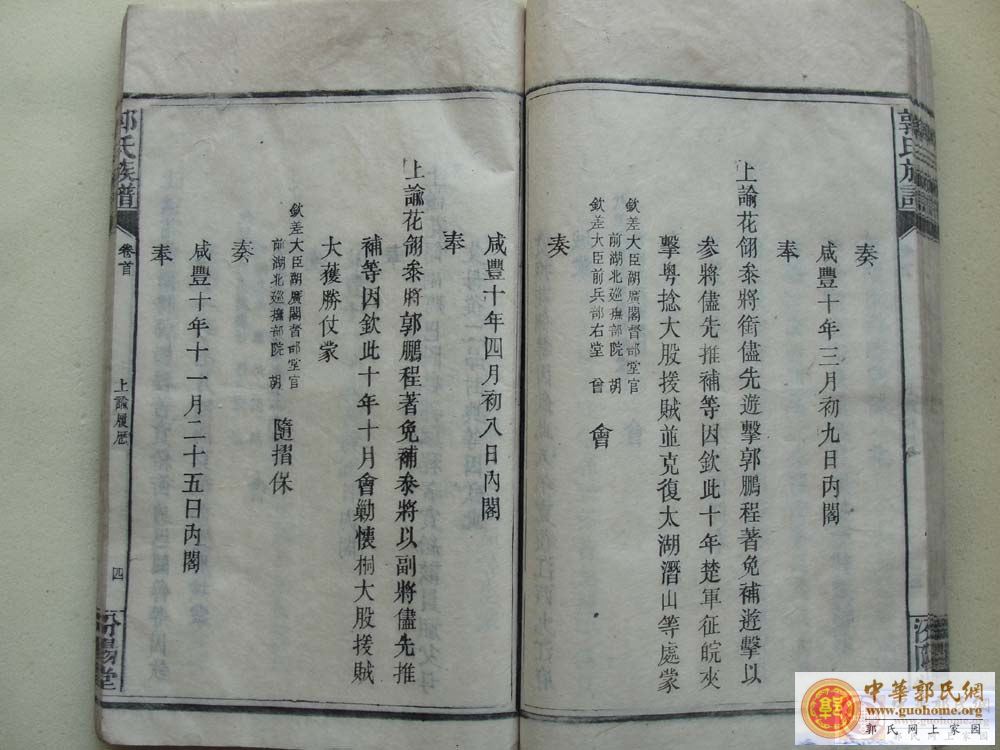 奏
咸豐十年三月初九日內閣
奉
上諭花翎叅將銜儘先遊擊郭鵬程著免補遊擊以
叅將儘先推補等因欽此十年楚軍征皖夾
擊粵捻大股援賊並克復太湖潛山等處蒙
欽差大臣湖廣閣督部堂官
前湖北巡撫部院 胡
欽差大臣前兵部右堂 曾
會
奏
咸豐十年四月初八日內閣
奉
上諭花翎叅將郭鵬程著免補叅將以副將儘先推
補等因欽此十年十月會勦懷桐大股援賊
大獲勝仗蒙
欽差大臣湖廣閣督部堂官
前湖北巡撫部院 胡
隨摺保
奏
咸豐十年十一月二十五日內閣
奉
郭氏族譜
卷首
上諭履歷
四
汾陽堂
郭氏族譜
中華郭氏網
www.guohome.org
郭氏网上家园